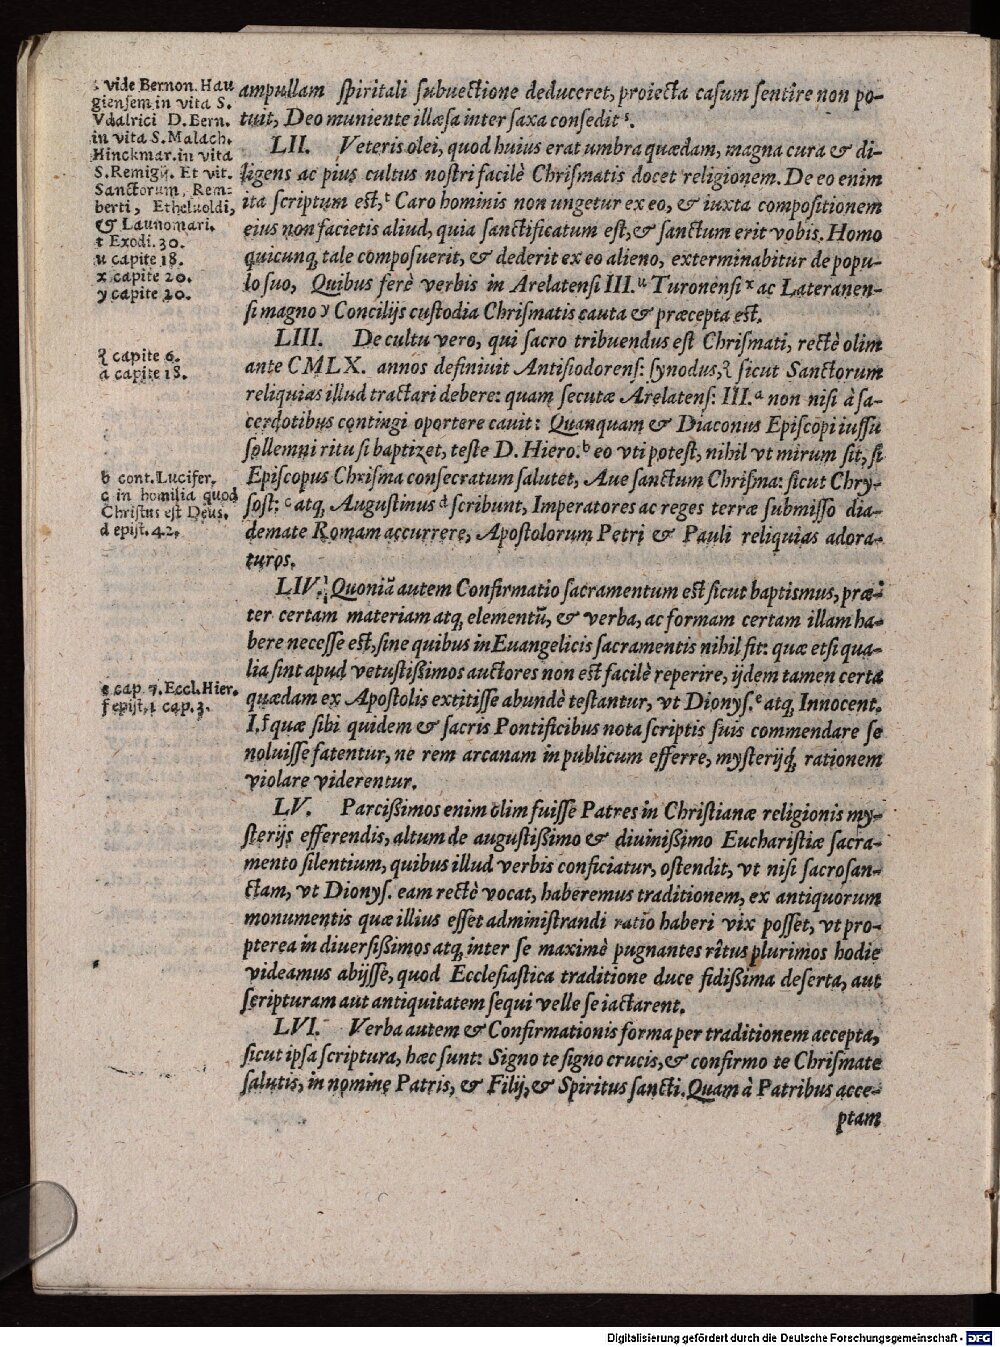 s vide Bernon. Hau
giensem in vita S.
Vdalrici D. Bern.
in vita S. Malach.
Hinckmar. in vita
S. Remigij. Et vit.
Sanctorum, Rem-
berti, Etheluoldi,
& Launomari.
t Exodi. 30.
u capite 18.
x capite 20.
y capite 20.
ampullam spiritali subuectione deduceret, proiecta casum sentire non po-
tuit, Deo muniente illæsa inter saxa consedit s.
LII. Veteris olei, quod huius erat umbra quædam, magna cura & di-
ligens ac pius cultus nostri facilè Chrismatis docet religionem. De eo enim
ita scriptum est, t Caro hominis non ungetur ex eo, & iuxta compositionem
eius non facietis aliud, quia sanctificatum est, & sanctum erit vobis. Homo
quicunq; tale composuerit, & dederit ex eo alieno, exterminabitur de popu-
lo suo, Quibus ferè verbis in Arelatensi III. u Turonensi x ac Lateranen-
si magno y Concilijs custodia Chrismatis cauta & præcepta est.
z capite 6.
a capite 18.
b cont. Lucifer.
c in homilia quod
Christus est Deus.
d epist. 42.
LIII. De cultu vero, qui sacro tribuendus est Chrismati, rectè olim
ante CMLX. annos definiuit Antisiodorens: synodus, z sicut Sanctorum
reliquias illud tractari debere: quam secutæ Arelatens: III. a non nisi à sa-
cerdotibus contingi oportere cauit: Quanquam & Diaconus Episcopi iussu
sollemni ritu si baptizet, teste D. Hiero. b eo vti potest, nihil vt mirum sit, si
Episcopus Chrisma consecratum salutet, Aue sanctum Chrisma: sicut Chry-
sost: c atq; Augustinus d scribunt, Imperatores ac reges terræ submisso dia-
demate Romam accurrere, Apostolorum Petri & Pauli reliquias adora-
turos.
e cap. 7. Eccl. Hier.
f epist. 1 cap. 3.
LIV. Quoniã autem Confirmatio sacramentum est sicut baptismus, præ-
ter certam materiam atq; elementũ, & verba, ac formam certam illam ha-
bere necesse est, sine quibus in Euangelicis sacramentis nihil fit: quæ etsi qua-
lia sint apud vetustißimos auctores non est facilè reperire, ijdem tamen certa
quædam ex Apostolis extitisse abundè testantur, vt Dionys. e atq; Innocent.
I. f quæ sibi quidem & sacris Pontificibus nota scriptis suis commendare se
noluisse fatentur, ne rem arcanam in publicum efferre, mysterijq; rationem
violare viderentur.
LV. Parcißimos enim olim fuisse Patres in Christianæ religionis my-
sterijs efferendis, altum de augustißimo & diuinißimo Eucharistiæ sacra-
mento silentium, quibus illud verbis conficiatur, ostendit, vt nisi sacrosan-
ctam, vt Dionys. eam rectè vocat, haberemus traditionem, ex antiquorum
monumentis quæ illius esset administrandi ratio haberi vix posset, vt pro-
pterea in diuersißimos atq; inter se maximè pugnantes rîtus plurimos hodie
videamus abijsse, quod Ecclesiastica traditione duce fidißima deserta, aut
scripturam aut antiquitatem sequi velle se iactarent.
LVI. Verba autem & Confirmationis forma per traditionem accepta,
sicut ipsa scriptura, hæc sunt: Signo te signo crucis, & confirmo te Chrismate
salutis, in nomine Patris, & Filij, & Spiritus sancti. Quam à Patribus acce-
ptam
Digitalisierung gefördert durch die Deutsche Forschungsgemeinschaft - DFG